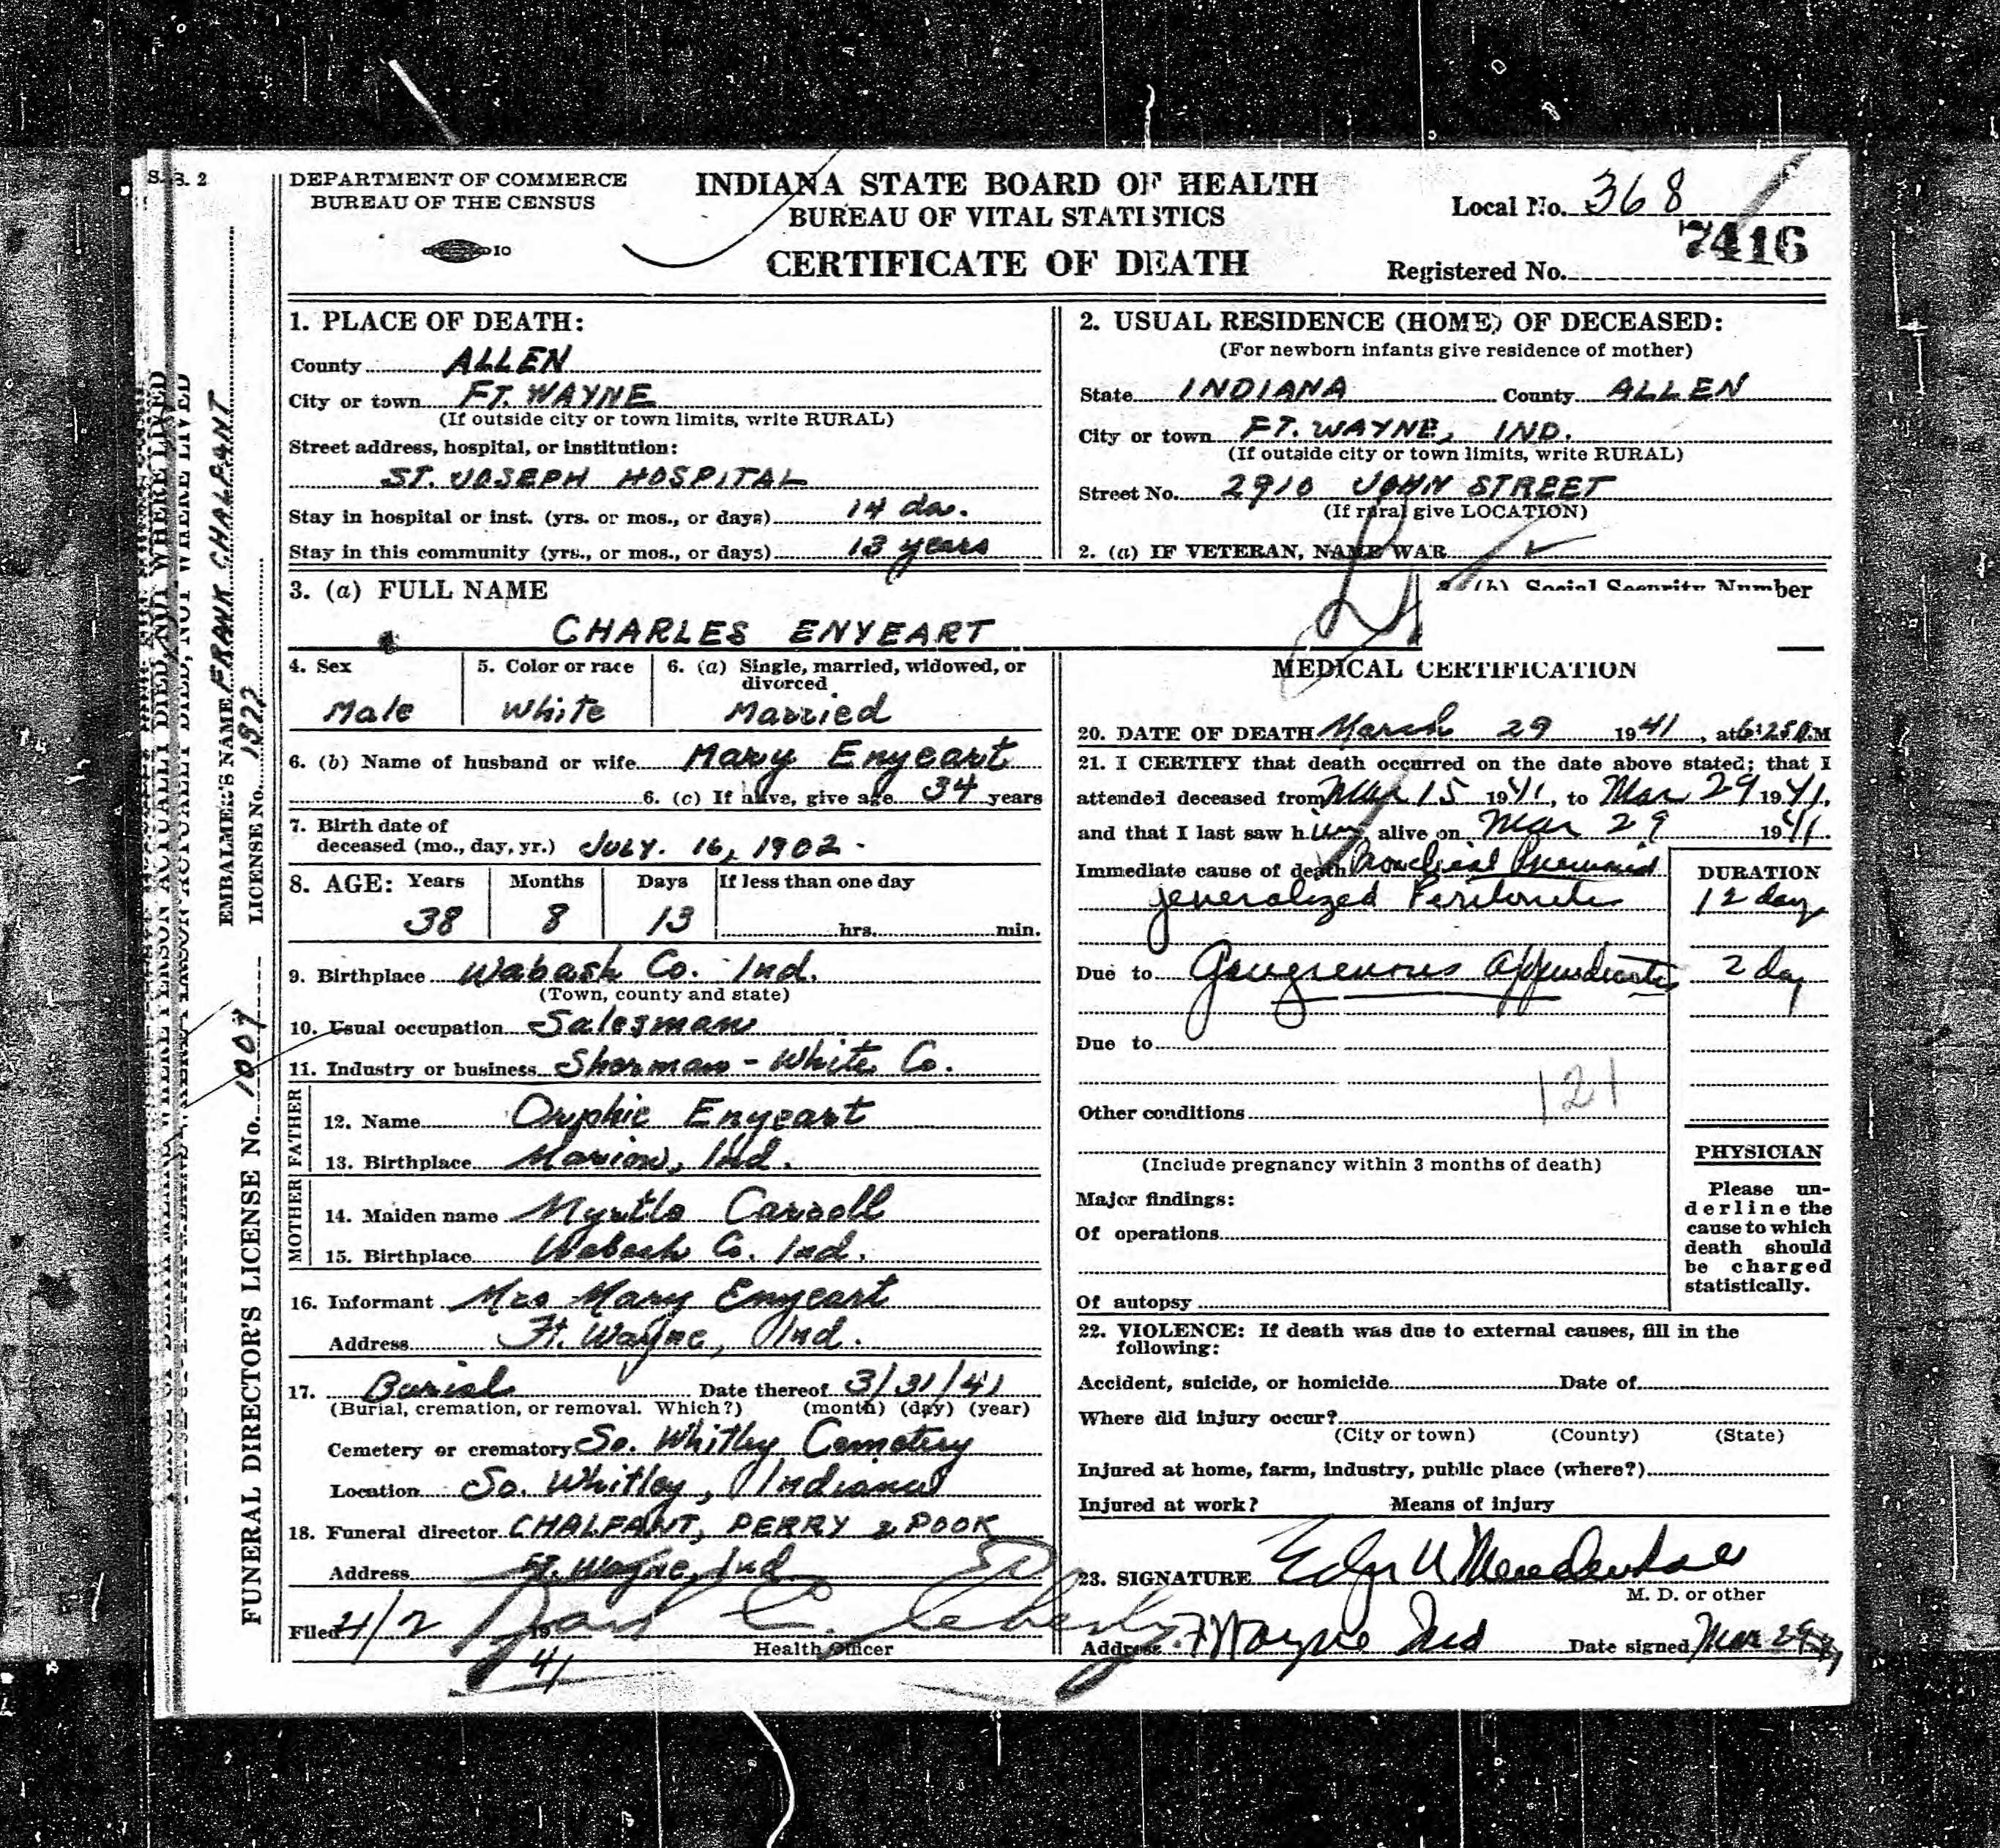 S. S. 2
DEPARTMENT OF COMMERCE
BUREAU OF THE CENSUS
10
INDIANA STATE BOARD OF HEALTH
BUREAU OF VITAL STATISTICS
CERTIFICATE OF DEATH
Local No. 368
7416
Registered No.
1. PLACE OF DEATH:
County ALLEN
City or town FT. WAYNE
(If outside city or town limits, write RURAL)
Street address, hospital, or institution:
ST. JOSEPH HOSPITAL
Stay in hospital or inst. (yrs. or mos., or days) 14 da.
Stay in this community (yrs., or mos., or days) 13 years
2. USUAL RESIDENCE (HOME) OF DECEASED:
(For newborn infants give residence of mother)
State INDIANA County ALLEN
City or town FT. WAYNE, IND.
(If outside city or town limits, write RURAL)
Street No. 2910 JOHN STREET
(If rural give LOCATION)
2. (a) IF VETERAN, NAME WAR
3. (a) FULL NAME
(b) Social Security Number
CHARLES ENYEART
4. Sex
Male
5. Color or race
White
6. (a) Single, married, widowed, or
divorced
Married
6. (b) Name of husband or wife Mary Enyeart
6. (c) If alive, give age 34 years
7. Birth date of
deceased (mo., day, yr.) JULY. 16, 1902.
8. AGE: Years Months Days If less than one day
38 8 13 hrs. min.
9. Birthplace Wabash Co. Ind.
(Town, county and state)
10. Usual occupation Salesman
11. Industry or business Sherman - White Co.
FATHER
12. Name Orphie Enyeart
13. Birthplace Marion, Ind.
MOTHER
14. Maiden name Myrtle Carroll
15. Birthplace Wabash Co. Ind.
16. Informant Mrs Mary Enyeart
Address Ft. Wayne, Ind.
17. Burial Date thereof 3/31/41
(Burial, cremation, or removal. Which?) (month) (day) (year)
Cemetery or crematory So. Whitley Cemetery
Location So. Whitley, Indiana
18. Funeral director CHALFANT, PERRY & POOK
Address Ft. Wayne, Ind
Filed 4/2 19 41
Health Officer
MEDICAL CERTIFICATION
20. DATE OF DEATH March 29 1941, at 6:25 P.M
21. I CERTIFY that death occurred on the date above stated; that I
attended deceased from Mar 15 1941, to Mar 29 1941,
and that I last saw him alive on Mar 29 1941.
Immediate cause of death Bronchial Pneumonia
generalized Peritonitis
DURATION
12 day
Due to Gangrenous Appendicitis
2 day
Due to
121
Other conditions
(Include pregnancy within 3 months of death)
Major findings:
Of operations
Of autopsy
PHYSICIAN
Please un-
derline the
cause to which
death should
be charged
statistically.
22. VIOLENCE: If death was due to external causes, fill in the
following:
Accident, suicide, or homicide Date of
Where did injury occur?
(City or town) (County) (State)
Injured at home, farm, industry, public place (where?)
Injured at work? Means of injury
23. SIGNATURE
M. D. or other
Address Ft Wayne Ind Date signed Mar 29 41
EMBALMER'S NAME FRANK CHALFANT
LICENSE No. 1322
FUNERAL DIRECTOR'S LICENSE No. 1007